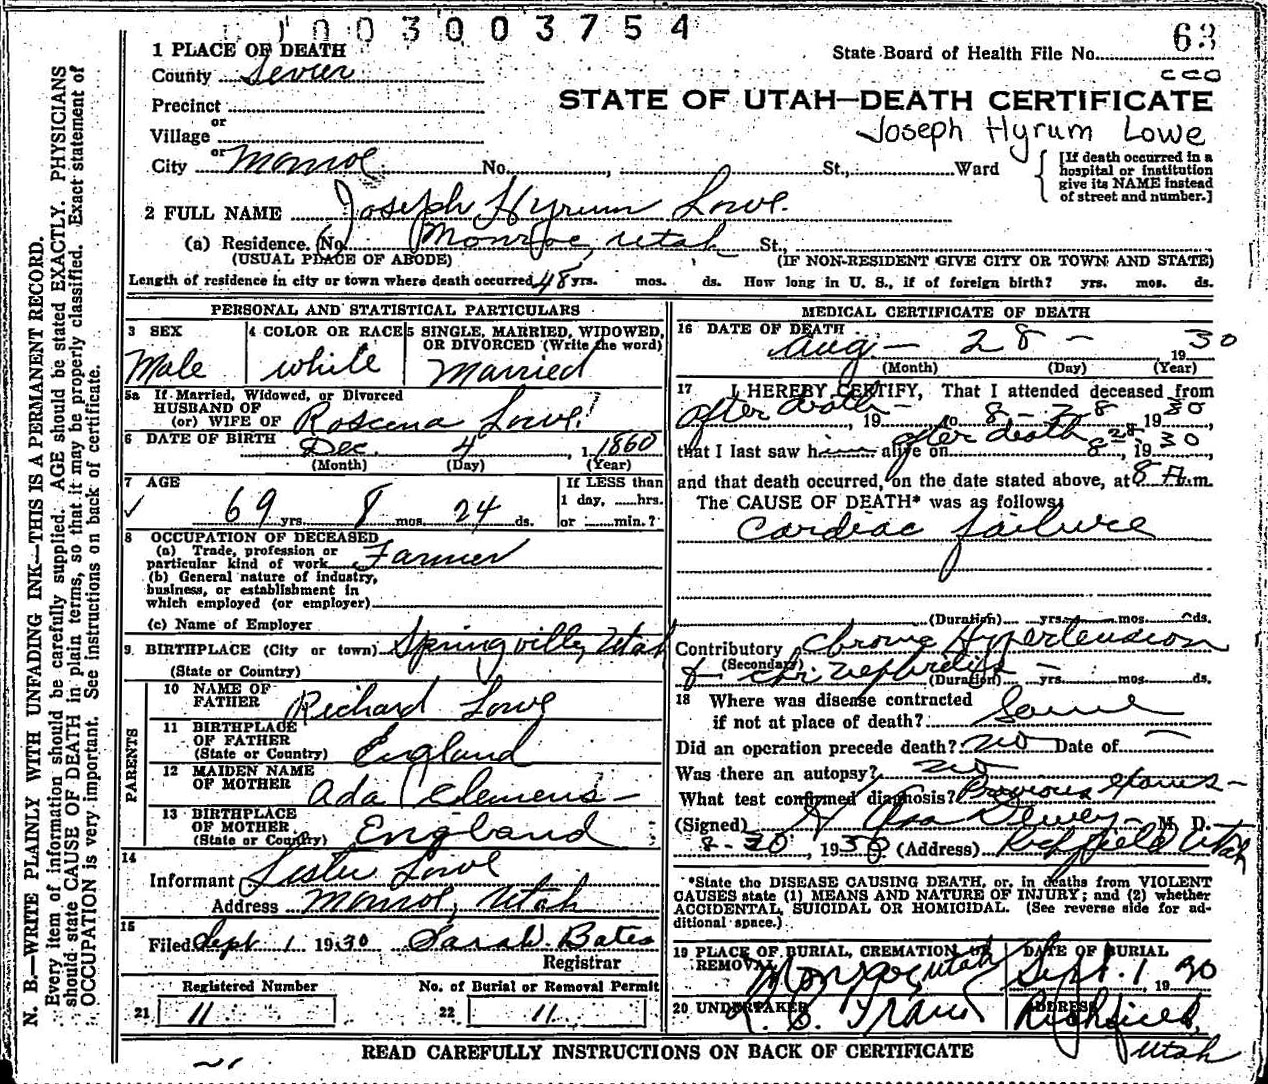 1003003754
State Board of Health File No. 63
1 PLACE OF DEATH
County Sevier
Precinct
or
Village
or
City Monroe No. , St., Ward
STATE OF UTAH—DEATH CERTIFICATE
Joseph Hyrum Lowe
[If death occurred in a hospital or institution give its NAME instead of street and number.]
2 FULL NAME Joseph Hyrum Lowe.
(a) Residence. (No. Monroe, Utah St.,
(USUAL PLACE OF ABODE) (IF NON-RESIDENT GIVE CITY OR TOWN AND STATE)
Length of residence in city or town where death occurred 48 yrs. mos. ds. How long in U. S., if of foreign birth? yrs. mos. ds.
PERSONAL AND STATISTICAL PARTICULARS
3 SEX
Male
4 COLOR OR RACE
White
5 SINGLE, MARRIED, WIDOWED, OR DIVORCED (Write the word)
Married
5a If Married, Widowed, or Divorced
HUSBAND OF
(or) WIFE OF Roscena Lowe
6 DATE OF BIRTH Dec. 4, 1860
(Month) (Day) (Year)
7 AGE
69 yrs. 8 mos. 24 ds.
If LESS than
1 day, hrs.
or min.?
8 OCCUPATION OF DECEASED
(a) Trade, profession or
particular kind of work Farmer
(b) General nature of industry,
business, or establishment in
which employed (or employer)
(c) Name of Employer
9 BIRTHPLACE (City or town) Springville, Utah
(State or Country)
PARENTS
10 NAME OF FATHER Richard Lowe
11 BIRTHPLACE OF FATHER England
(State or Country)
12 MAIDEN NAME OF MOTHER Ada Clemens
13 BIRTHPLACE OF MOTHER England
(State or Country)
14
Informant Lester Lowe
Address Monroe, Utah
15
Filed Sept 1 1930 Sarah Bates
Registrar
Registered Number
21 11
No. of Burial or Removal Permit
22 11
MEDICAL CERTIFICATE OF DEATH
16 DATE OF DEATH
Aug — 28 — 1930
(Month) (Day) (Year)
17 I HEREBY CERTIFY, That I attended deceased from
after death — , 19 to 8-28, 1930,
that I last saw him alive on after death 8-28, 1930,
and that death occurred, on the date stated above, at 8 A.m.
The CAUSE OF DEATH* was as follows:
Cardiac failure
(Duration) yrs. mos. ds.
Contributory Chronic Hypertension
(Secondary)
& chr. nephritis —
(Duration) yrs. mos. ds.
18 Where was disease contracted
if not at place of death? Same
Did an operation precede death? no Date of —
Was there an autopsy? no
What test confirmed diagnosis? Previous exams —
(Signed) H Asa Dewey M. D.
8-30, 1930 (Address) Richfield Utah
*State the DISEASE CAUSING DEATH, or, in deaths from VIOLENT
CAUSES state (1) MEANS AND NATURE OF INJURY; and (2) whether
ACCIDENTAL, SUICIDAL OR HOMICIDAL. (See reverse side for ad-
ditional space.)
19 PLACE OF BURIAL, CREMATION, OR REMOVAL
Monroe, Utah
DATE OF BURIAL
Sept. 1, 1930
20 UNDERTAKER
ADDRESS
Richfield,
Utah
READ CAREFULLY INSTRUCTIONS ON BACK OF CERTIFICATE
N. B.—WRITE PLAINLY WITH UNFADING INK—THIS IS A PERMANENT RECORD.
Every item of information should be carefully supplied. AGE should be stated EXACTLY. PHYSICIANS
should state CAUSE OF DEATH in plain terms, so that it may be properly classified. Exact statement of
OCCUPATION is very important. See instructions on back of certificate.